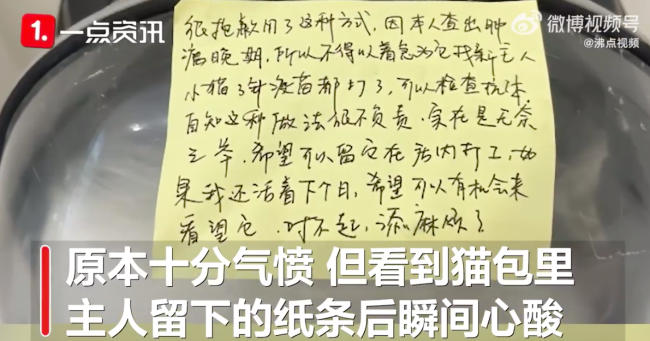 1. 一点资讯
微博视频号
@沸点视频
很抱歉用了这种方式，因本人查出肿
瘤晚期，所以不得以着急为它找新主人
小猫3针疫苗都打了，可以检查抗体
自知这种做法很不负责，实在是无奈
之举，希望可以留它在店内打工，如
果我还活着下个月，希望可以有机会来
看望它，对不起，添麻烦了
原本十分气愤 但看到猫包里
主人留下的纸条后瞬间心酸